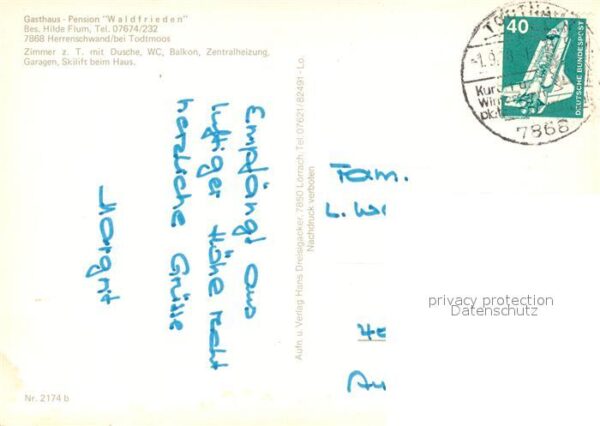 Gasthaus - Pension "Waldfrieden"
Bes. Hilde Flum, Tel. 07674/232
7868 Herrenschwand/bei Todtmoos
Zimmer z. T. mit Dusche, WC, Balkon, Zentralheizung,
Garagen, Skilift beim Haus.
Empfängt aus
luftiger Höhe recht
herzliche Grüsse
Margrit
Nr. 2174 b
Aufn. u. Verlag Hans Dreisigacker, 7850 Lörrach, Tel. 07621/82491 - Lo.
Nachdruck verboten
40
DEUTSCHE BUNDESPOST
7868
Fam.
L. Wi
privacy protection
Datenschutz